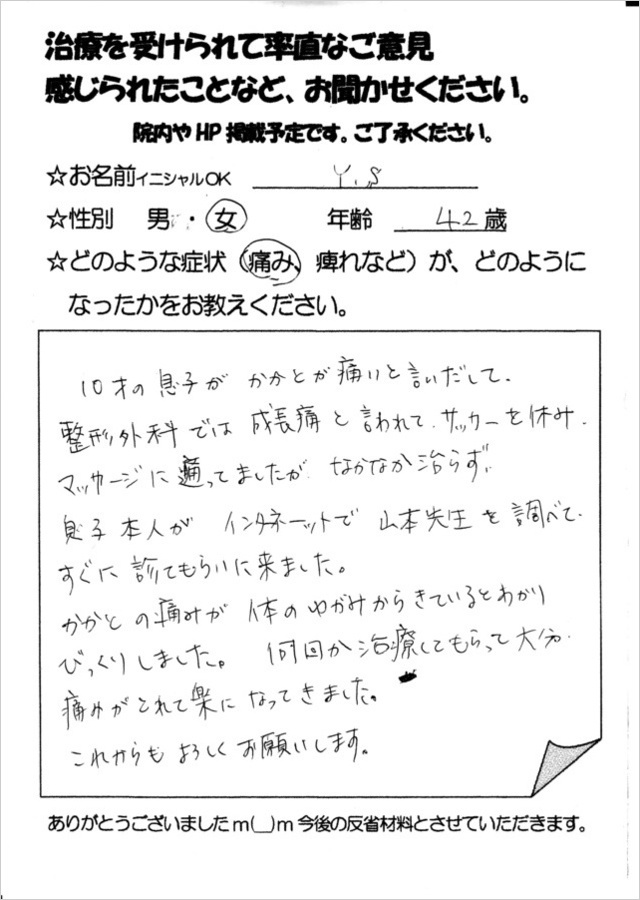 治療を受けられて率直なご意見
感じられたことなど、お聞かせください。
院内やHP掲載予定です。ご了承ください。
☆お名前イニシャルOK Y.S
☆性別 男・女 年齢 42歳
☆どのような症状（痛み、痺れなど）が、どのように
なったかをお教えください。
10才の息子が かかとが痛いと言いだして、
整形外科では 成長痛と言われて、サッカーを休み、
マッサージに通ってましたが、なかなか治らず、
息子本人が インタネーットで 山本先生を調べて、
すぐに診てもらいに来ました。
かかとの痛みが 体のゆがみからきているとわかり
びっくりしました。 何回か治療してもらって大分、
痛みがとれて楽になってきました。
これからもよろしくお願いします。
ありがとうございましたm(__)m今後の反省材料とさせていただきます。